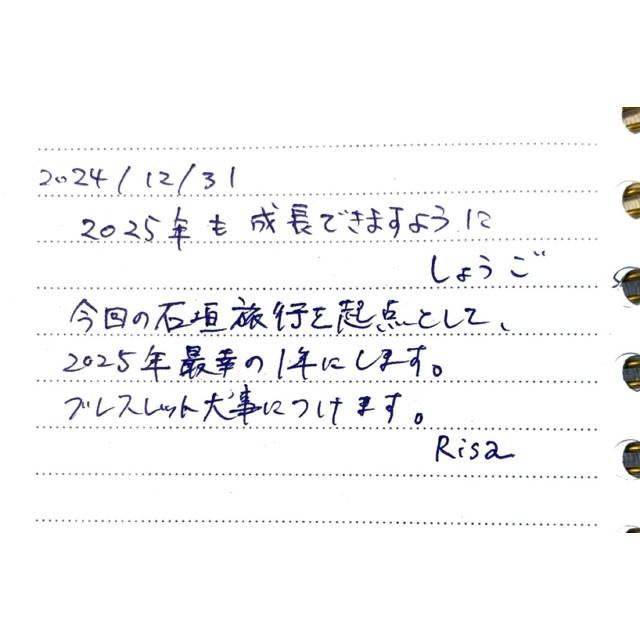 2024/12/31
2025年も成長できますように
しょうご
今回の石垣旅行を起点として、
2025年最幸の1年にします。
ブレスレット大事につけます。
Risa